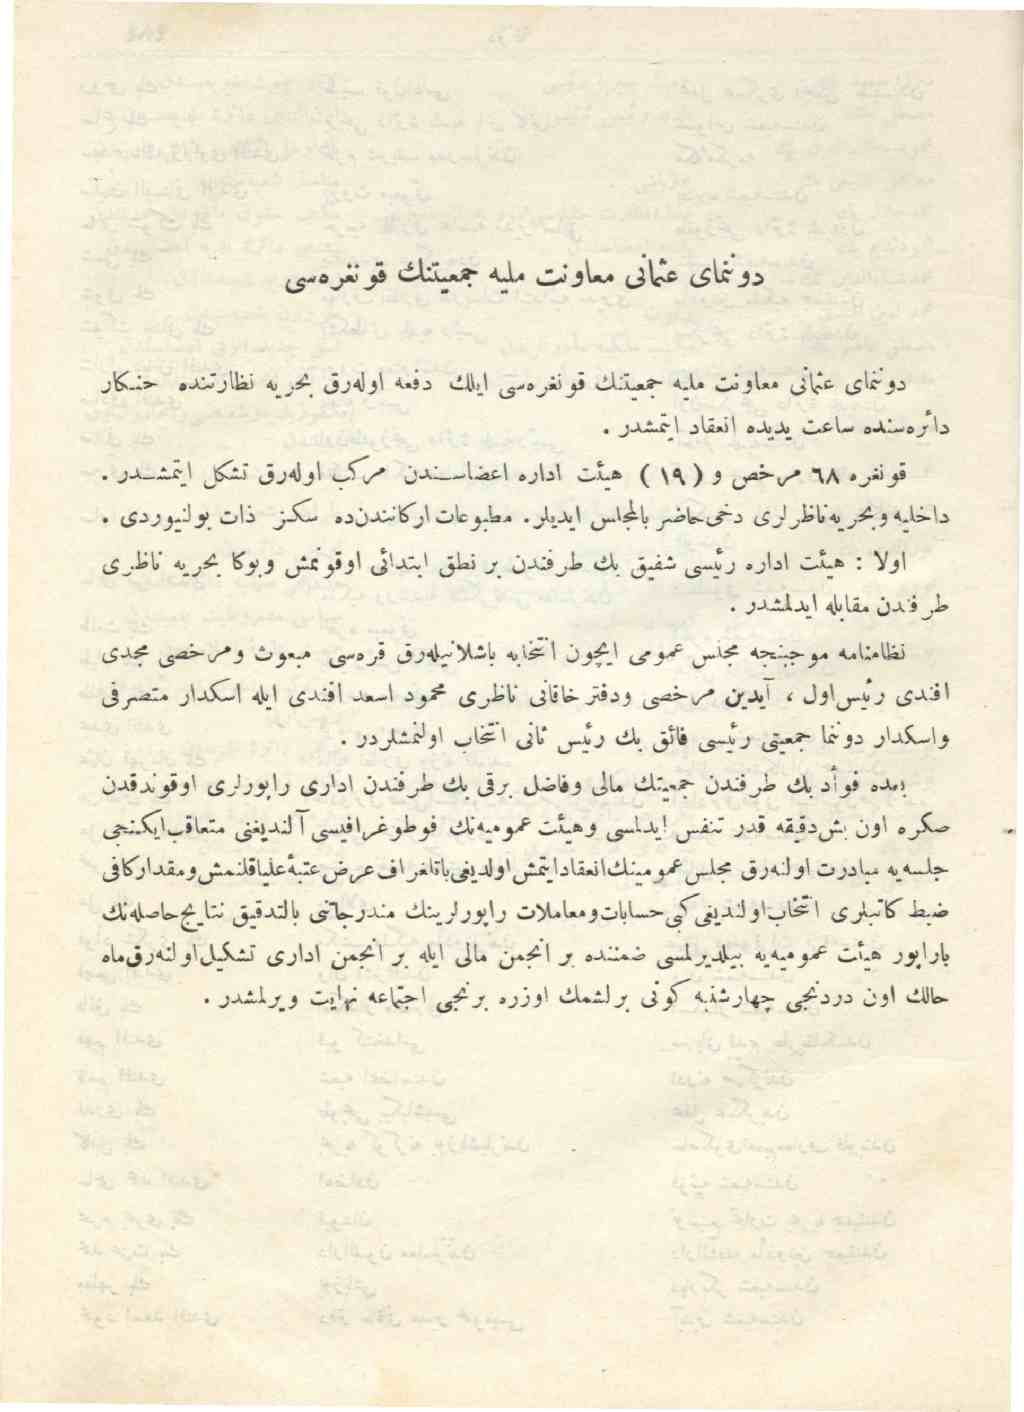 دوننمای عثمانی معاونت ملیه جمعیتنك قونغره‌سی
دوننمای عثمانی معاونت ملیه جمعیتنك قونغره‌سی ایلك دفعه اوله‌رق بحریه نظارتنده خنكار
دائره‌سنده ساعت یدیده انعقاد ایتمشدر .
قونغره ٦٨ مرخص و ( ١٩ ) هیئت اداره اعضاسندن مركب اوله‌رق تشكل ایتمشدر .
داخلیه وبحریه ناظرلری دخی حاضر بالمجلس ایدیلر . مطبوعات اركانندن ده سكز ذات بولنیوردی .
اولا : هیئت اداره رئیسی شفیق بك طرفندن بر نطق ابتدائی اوقونمش وبوكا بحریه ناظری
طرفندن مقابله ایدلمشدر .
نظامنامه موجبنجه مجلس عمومی ایچون انتخابه باشلانیله‌رق قره‌سی مبعوث ومرخصی مجدی
افندی رئیس اول ، آیدین مرخصی ودفتر خاقانی ناظری محمود اسعد افندی ایله اسكدار متصرفی
واسكدار دوننما جمعیتی رئیسی فائق بك رئیس ثانی انتخاب اولنمشلردر .
بعده فوأد بك طرفندن جمعیتك مالی وفاضل برقی بك طرفندن اداری راپورلری اوقوندقدن
صكره اون بش دقیقه قدر تنفس ایدلسی وهیئت عمومیه‌نك فوطوغرافیسی آلندیغنی متعاقب ایكنجی
جلسه‌یه مبادرت اولنه‌رق مجلس عمومینك انعقاد ایتمش اولدیغی باتلغراف عرض عتبهٔ علیا قلنمش ومقدار كافی
ضبط كاتبلری انتخاب اولندیغی كبی حسابات ومعاملات راپورلرینك مندرجاتنی بالتدقیق نتایج حاصله‌نك
باراپور هیئت عمومیه‌یه بیلدیرلمسی ضمننده بر انجمن مالی ایله بر انجمن اداری تشكیل اولنه‌رق ماه
حالك اون دردنجی چهارشنبه كونی برلشمك اوزره برنجی اجتماعه نهایت ویرلمشدر .